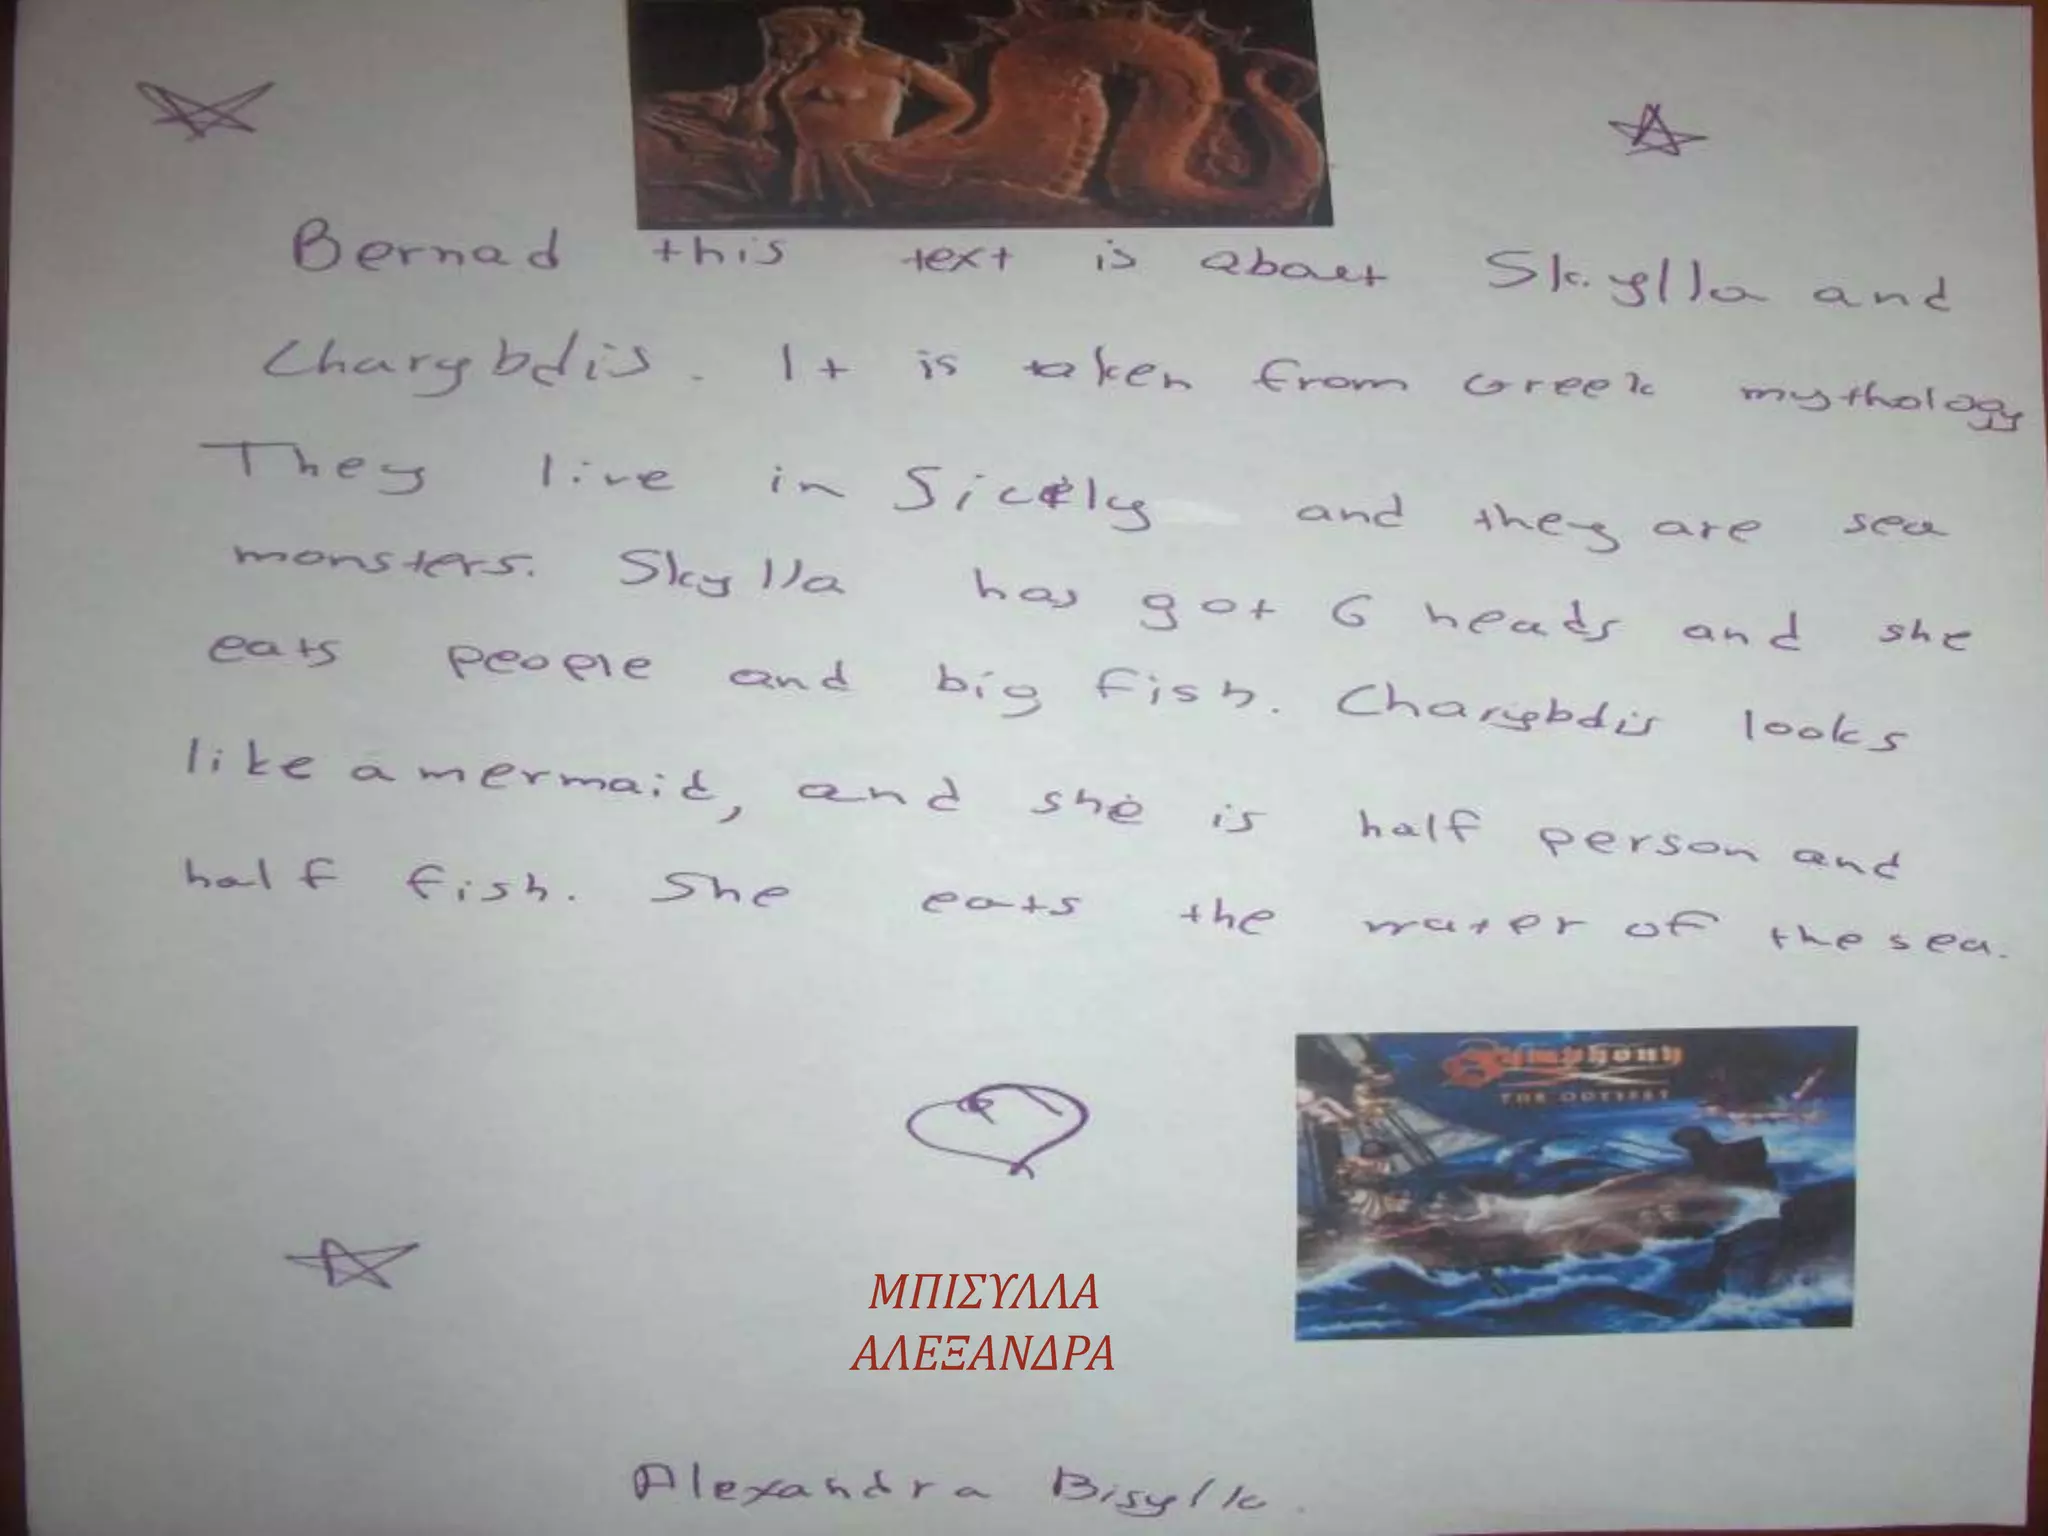 Bernad this text is about Skylla and
Charybdis. It is taken from Greek mythology
They live in Sicily and they are sea
monsters. Skylla has got 6 heads and she
eats people and big fish. Charybdis looks
like a mermaid, and she is half person and
half fish. She eats the water of the sea.
Symphony X
THE ODYSSEY
ΜΠΙΣΥΛΛΑ
ΑΛΕΞΑΝΔΡΑ
Alexandra Bisylla.